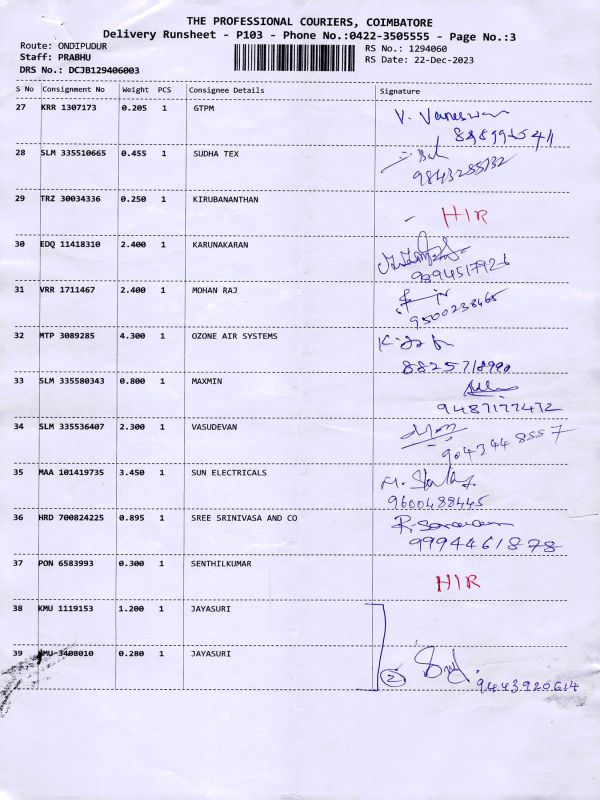 THE PROFESSIONAL COURIERS, COIMBATORE
Delivery Runsheet - P103 - Phone No.:0422-3505555 - Page No.:3
Route: ONDIPUDUR
RS No.: 1294060
Staff: PRABHU
RS Date: 22-Dec-2023
DRS No.: DCJB129406003
S No Consignment No Weight PCS Consignee Details Signature
27 KRR 1307173 0.205 1 GTPM
V.
28 SLM 335510665 0.455 1 SUDHA TEX
9843255732
29 TRZ 30034336 0.250 1 KIRUBANANTHAN
HIR
30 EDQ 11418310 2.400 1 KARUNAKARAN
9894517726
31 VRR 1711467 2.400 1 MOHAN RAJ
9500238465
32 MTP 3089285 4.300 1 OZONE AIR SYSTEMS
33 SLM 335580343 0.800 1 MAXMIN
9487177472
34 SLM 335536407 2.300 1 VASUDEVAN
9043448557
35 MAA 101419735 3.450 1 SUN ELECTRICALS
9600488445
36 HRD 700824225 0.895 1 SREE SRINIVASA AND CO
9994461878
37 PON 6583993 0.300 1 SENTHILKUMAR
HIR
38 KMU 1119153 1.200 1 JAYASURI
39 3408010 0.280 1 JAYASURI
2
9443920614